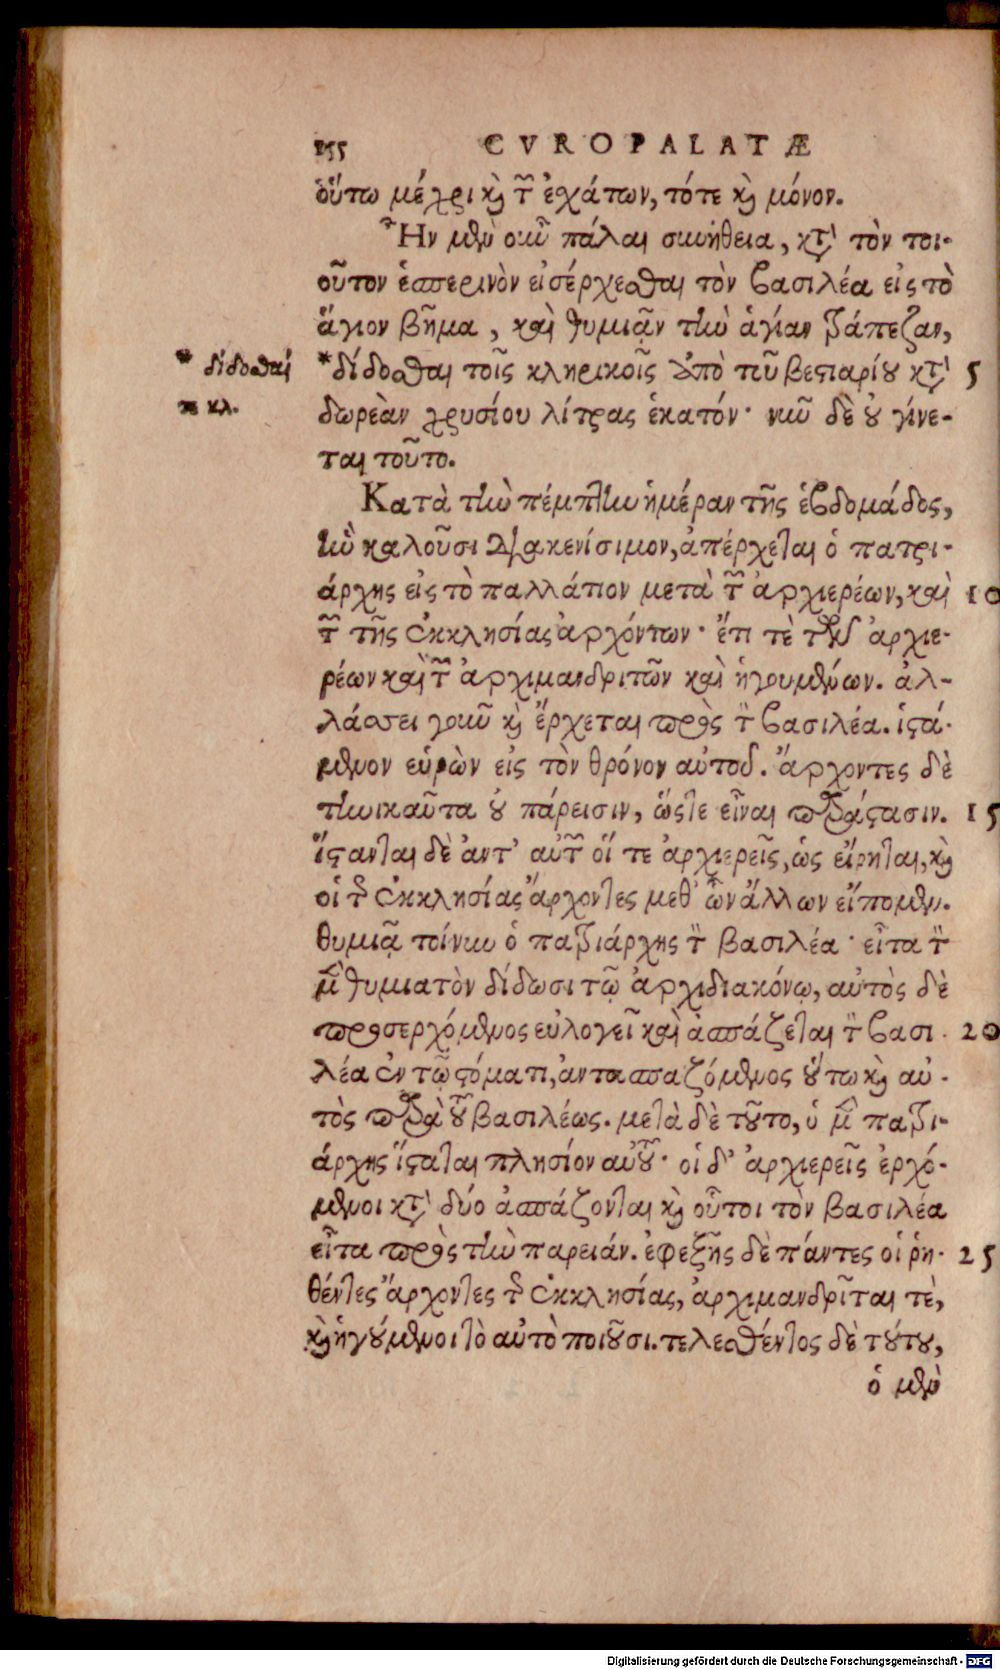 155 CVROPALATÆ
οὕτω μέχρι καὶ τῶν ἐχάτων, τότε καὶ μόνον.
Ἦν μὲν οὖν πάλαι συνήθεια, κατὰ τὸν τοι-
οῦτον ἑσπερινὸν εἰσέρχεσθαι τὸν βασιλέα εἰς τὸ
ἅγιον βῆμα, καὶ θυμιᾷν τὴν ἁγίαν τράπεζαν,
* δίδοσθαί
τε κλ.
*δίδοσθαι τοῖς κληρικοῖς ὑπὸ τοῦ βεστιαρίου κατὰ 5
δωρεὰν χρυσίου λίτρας ἑκατόν· νῦν δὲ οὐ γίνε-
ται τοῦτο.
Κατὰ τὴν πέμπτην ἡμέραν τῆς ἑβδομάδος,
ἣν καλοῦσι Διακενίσιμον, ἀπέρχεται ὁ πατρι-
άρχης εἰς τὸ παλλάτιον μετὰ τῶν ἀρχιερέων, καὶ 10
τῶν τῆς ἐκκλησίας ἀρχόντων· ἔτι τὲ τῶν ἀρχιε-
ρέων καὶ τῶν ἀρχιμανδριτῶν καὶ ἡγουμένων. ἀλ-
λάσσει γοῦν καὶ ἔρχεται πρὸς τὸν βασιλέα. ἱστά-
μενον εὑρὼν εἰς τὸν θρόνον αὐτοῦ. ἄρχοντες δὲ
τηνικαῦτα οὐ πάρεισιν, ὥστε εἶναι παράστασιν. 15
ἵστανται δὲ ἀντ' αὐτῶν οἵ τε ἀρχιερεῖς, ὡς εἴρηται, καὶ
οἱ τῆς ἐκκλησίας ἄρχοντες μεθ' ὧν ἄλλων εἴπομεν.
θυμιᾷ τοίνυν ὁ πατριάρχης τὸν βασιλέα· εἶτα τὸν
μὲν θυμιατὸν δίδωσι τῷ ἀρχιδιακόνῳ, αὐτὸς δὲ
προσερχόμενος εὐλογεῖ καὶ ἀσπάζεται τὸν βασι- 20
λέα ἐν τῷ στόματι, ἀντασπαζόμενος οὕτω καὶ αὐ-
τὸς παρὰ τοῦ βασιλέως. μετὰ δὲ τοῦτο, ὁ μὲν πατρι-
άρχης ἵσταται πλησίον αὐτοῦ· οἱ δ' ἀρχιερεῖς ἐρχό-
μενοι κατὰ δύο ἀσπάζονται καὶ οὗτοι τὸν βασιλέα
εἶτα πρὸς τὴν παρειάν. ἐφεξῆς δὲ πάντες οἱ ῥη- 25
θέντες ἄρχοντες τῆς ἐκκλησίας, ἀρχιμανδρῖται τὲ,
καὶ ἡγούμενοι τὸ αὐτὸ ποιοῦσι. τελεσθέντος δὲ τούτου,
ὁ μὲν